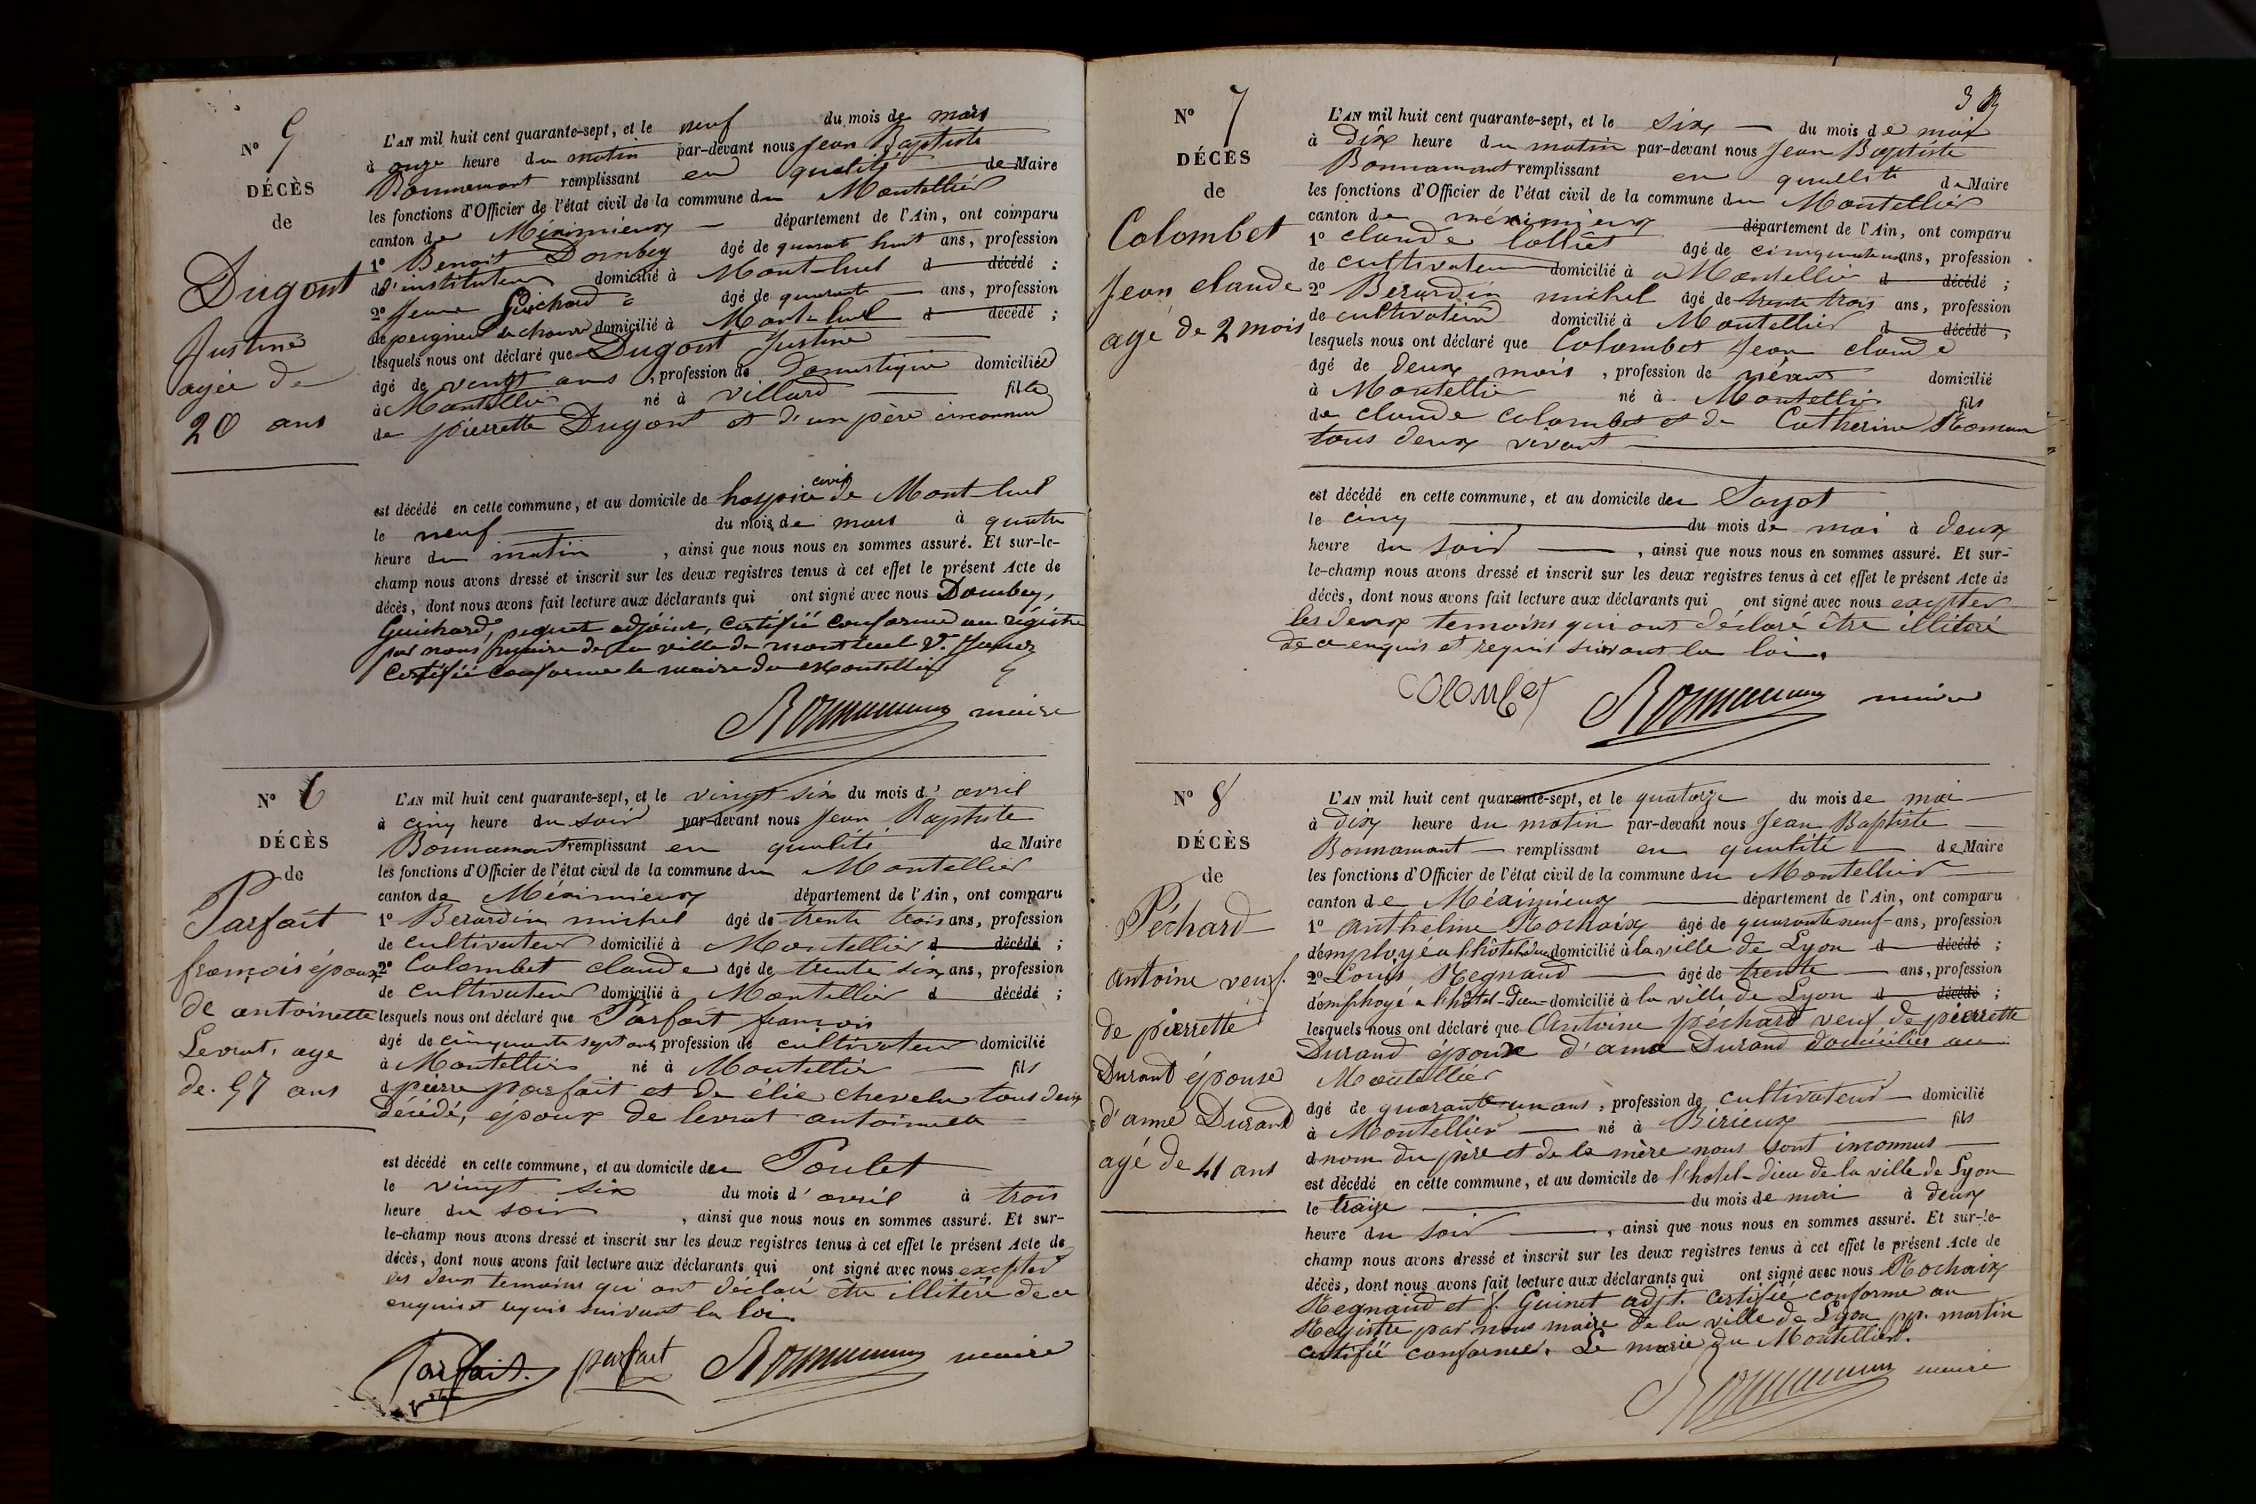 N° 5
DÉCÈS
de
Dugont
Justine
agée de
20 ans
L'AN mil huit cent quarante-sept, et le neuf du mois de mars
à onze heure du matin par-devant nous Jean Baptiste
Bonnamant remplissant en qualité de Maire
les fonctions d'Officier de l'état civil de la commune du Montellier
canton de Méximieux département de l'Ain, ont comparu
1° Benoit Dombey âgé de quarante huit ans, profession
d'instituteur domicilié à Mont-luel d décédé ;
2° Guichard âgé de quarante ans, profession
de peigneur de chanvre domicilié à Mont-luel d décédé ;
lesquels nous ont déclaré que Dugont Justine
âgé de vingt ans, profession de domestique domiciliée
à Montellier né à Villard fille
de pierrette Dugont et d'un père inconnu
est décédé en cette commune, et au domicile de hospice civil de Mont-luel
le neuf du mois de mars à quatre
heure du matin, ainsi que nous nous en sommes assuré. Et sur-le-
champ nous avons dressé et inscrit sur les deux registres tenus à cet effet le présent Acte de
décès, dont nous avons fait lecture aux déclarants qui ont signé avec nous Dombey,
Guichard, pequet adjoint, certifié conforme au régistre
par nous maire de la ville de montluel
Certifié conforme le maire du Montellier
Bonnamant maire
N° 6
DÉCÈS
de
Parfait
françois époux
de antoinette
Levrat, age
de 57 ans
L'AN mil huit cent quarante-sept, et le vingt six du mois d'avril
à cinq heure du soir par-devant nous Jean Baptiste
Bonnamant remplissant en qualité de Maire
les fonctions d'Officier de l'état civil de la commune du Montellier
canton de Méximieux département de l'Ain, ont comparu
1° Berardin michel âgé de trente trois ans, profession
de cultivateur domicilié à Montellier d décédé ;
2° Colombet claude âgé de trente six ans, profession
de cultivateur domicilié à Montellier d décédé ;
lesquels nous ont déclaré que Parfait françois
âgé de cinquante sept ans, profession de cultivateur domicilié
à Montellier né à Montellier fils
d pierre parfait et de élie chevelu tous deux
décédé, époux de levrat antoinette
est décédé en cette commune, et au domicile du Poulet
le vingt six du mois d'avril à trois
heure du soir, ainsi que nous nous en sommes assuré. Et sur-
le-champ nous avons dressé et inscrit sur les deux registres tenus à cet effet le présent Acte de
décès, dont nous avons fait lecture aux déclarants qui ont signé avec nous excepter
les deux temoins qui ont déclaré être illitéré de ce
enquis et requis suivant la loi.
Parfait. parfait Bonnamant maire
N° 7
DÉCÈS
de
Colombet
Jean claude
agé de 2 mois
3
L'AN mil huit cent quarante-sept, et le six du mois de mai
à dix heure du matin par-devant nous Jean Baptiste
Bonnamant remplissant en quallité de Maire
les fonctions d'Officier de l'état civil de la commune du Montellier
canton de méximieux département de l'Ain, ont comparu
1° claude Colliet âgé de ans, profession
de cultivateur domicilié à Montellier d décédé ;
2° Berardin michel âgé de trente trois ans, profession
de cultivateur domicilié à Montellier d décédé ;
lesquels nous ont déclaré que Colombet Jean claude
âgé de deux mois, profession de néant domicilié
à Montellier né à Montellier fils
de claude colombet et de Catherine Roman
tous deux vivant
est décédé en cette commune, et au domicile du Sayot
le cinq du mois de mai à deux
heure du soir, ainsi que nous nous en sommes assuré. Et sur-
le-champ nous avons dressé et inscrit sur les deux registres tenus à cet effet le présent Acte de
décès, dont nous avons fait lecture aux déclarants qui ont signé avec nous excepter
les deux temoins qui ont déclaré être illitéré
de ce enquis et requis suivant la loi.
Colombet Bonnamant maire
N° 8
DÉCÈS
de
Péchard
Antoine veuf
de pierrette
Durand épouse
d'anne Durand
agé de 41 ans
L'AN mil huit cent quarante-sept, et le quatorze du mois de mai
à dix heure du matin par-devant nous Jean Baptiste
Bonnamant remplissant en qualité de Maire
les fonctions d'Officier de l'état civil de la commune du Montellier
canton de Méximieux département de l'Ain, ont comparu
1° Anthelme Rochaix âgé de quarante neuf ans, profession
d'employé a l'hôtel dieu domicilié à la ville de Lyon d décédé ;
2° Louis Regnaud âgé de trente ans, profession
d'employé a l'hôtel-Dieu domicilié à la ville de Lyon d décédé ;
lesquels nous ont déclaré que Antoine péchard veuf de pierrette
Durand époux d'anne Durand domicilier au
Montellier
âgé de quarante un ans, profession de cultivateur domicilié
à Montellier né à Birieux fils
d nom du père et de la mère nous sont inconnus
est décédé en cette commune, et au domicile de l'hotel-dieu de la ville de Lyon
le traize du mois de mai à deux
heure du soir, ainsi que nous nous en sommes assuré. Et sur-le-
champ nous avons dressé et inscrit sur les deux registres tenus à cet effet le présent Acte de
décès, dont nous avons fait lecture aux déclarants qui ont signé avec nous Rochaix
Regnaud et f. Guinet adjt. Certifié conforme au
Registre par nous maire de la ville de Lyon pp. martin
certifié conforme. Le maire du Montellier.
Bonnamant maire